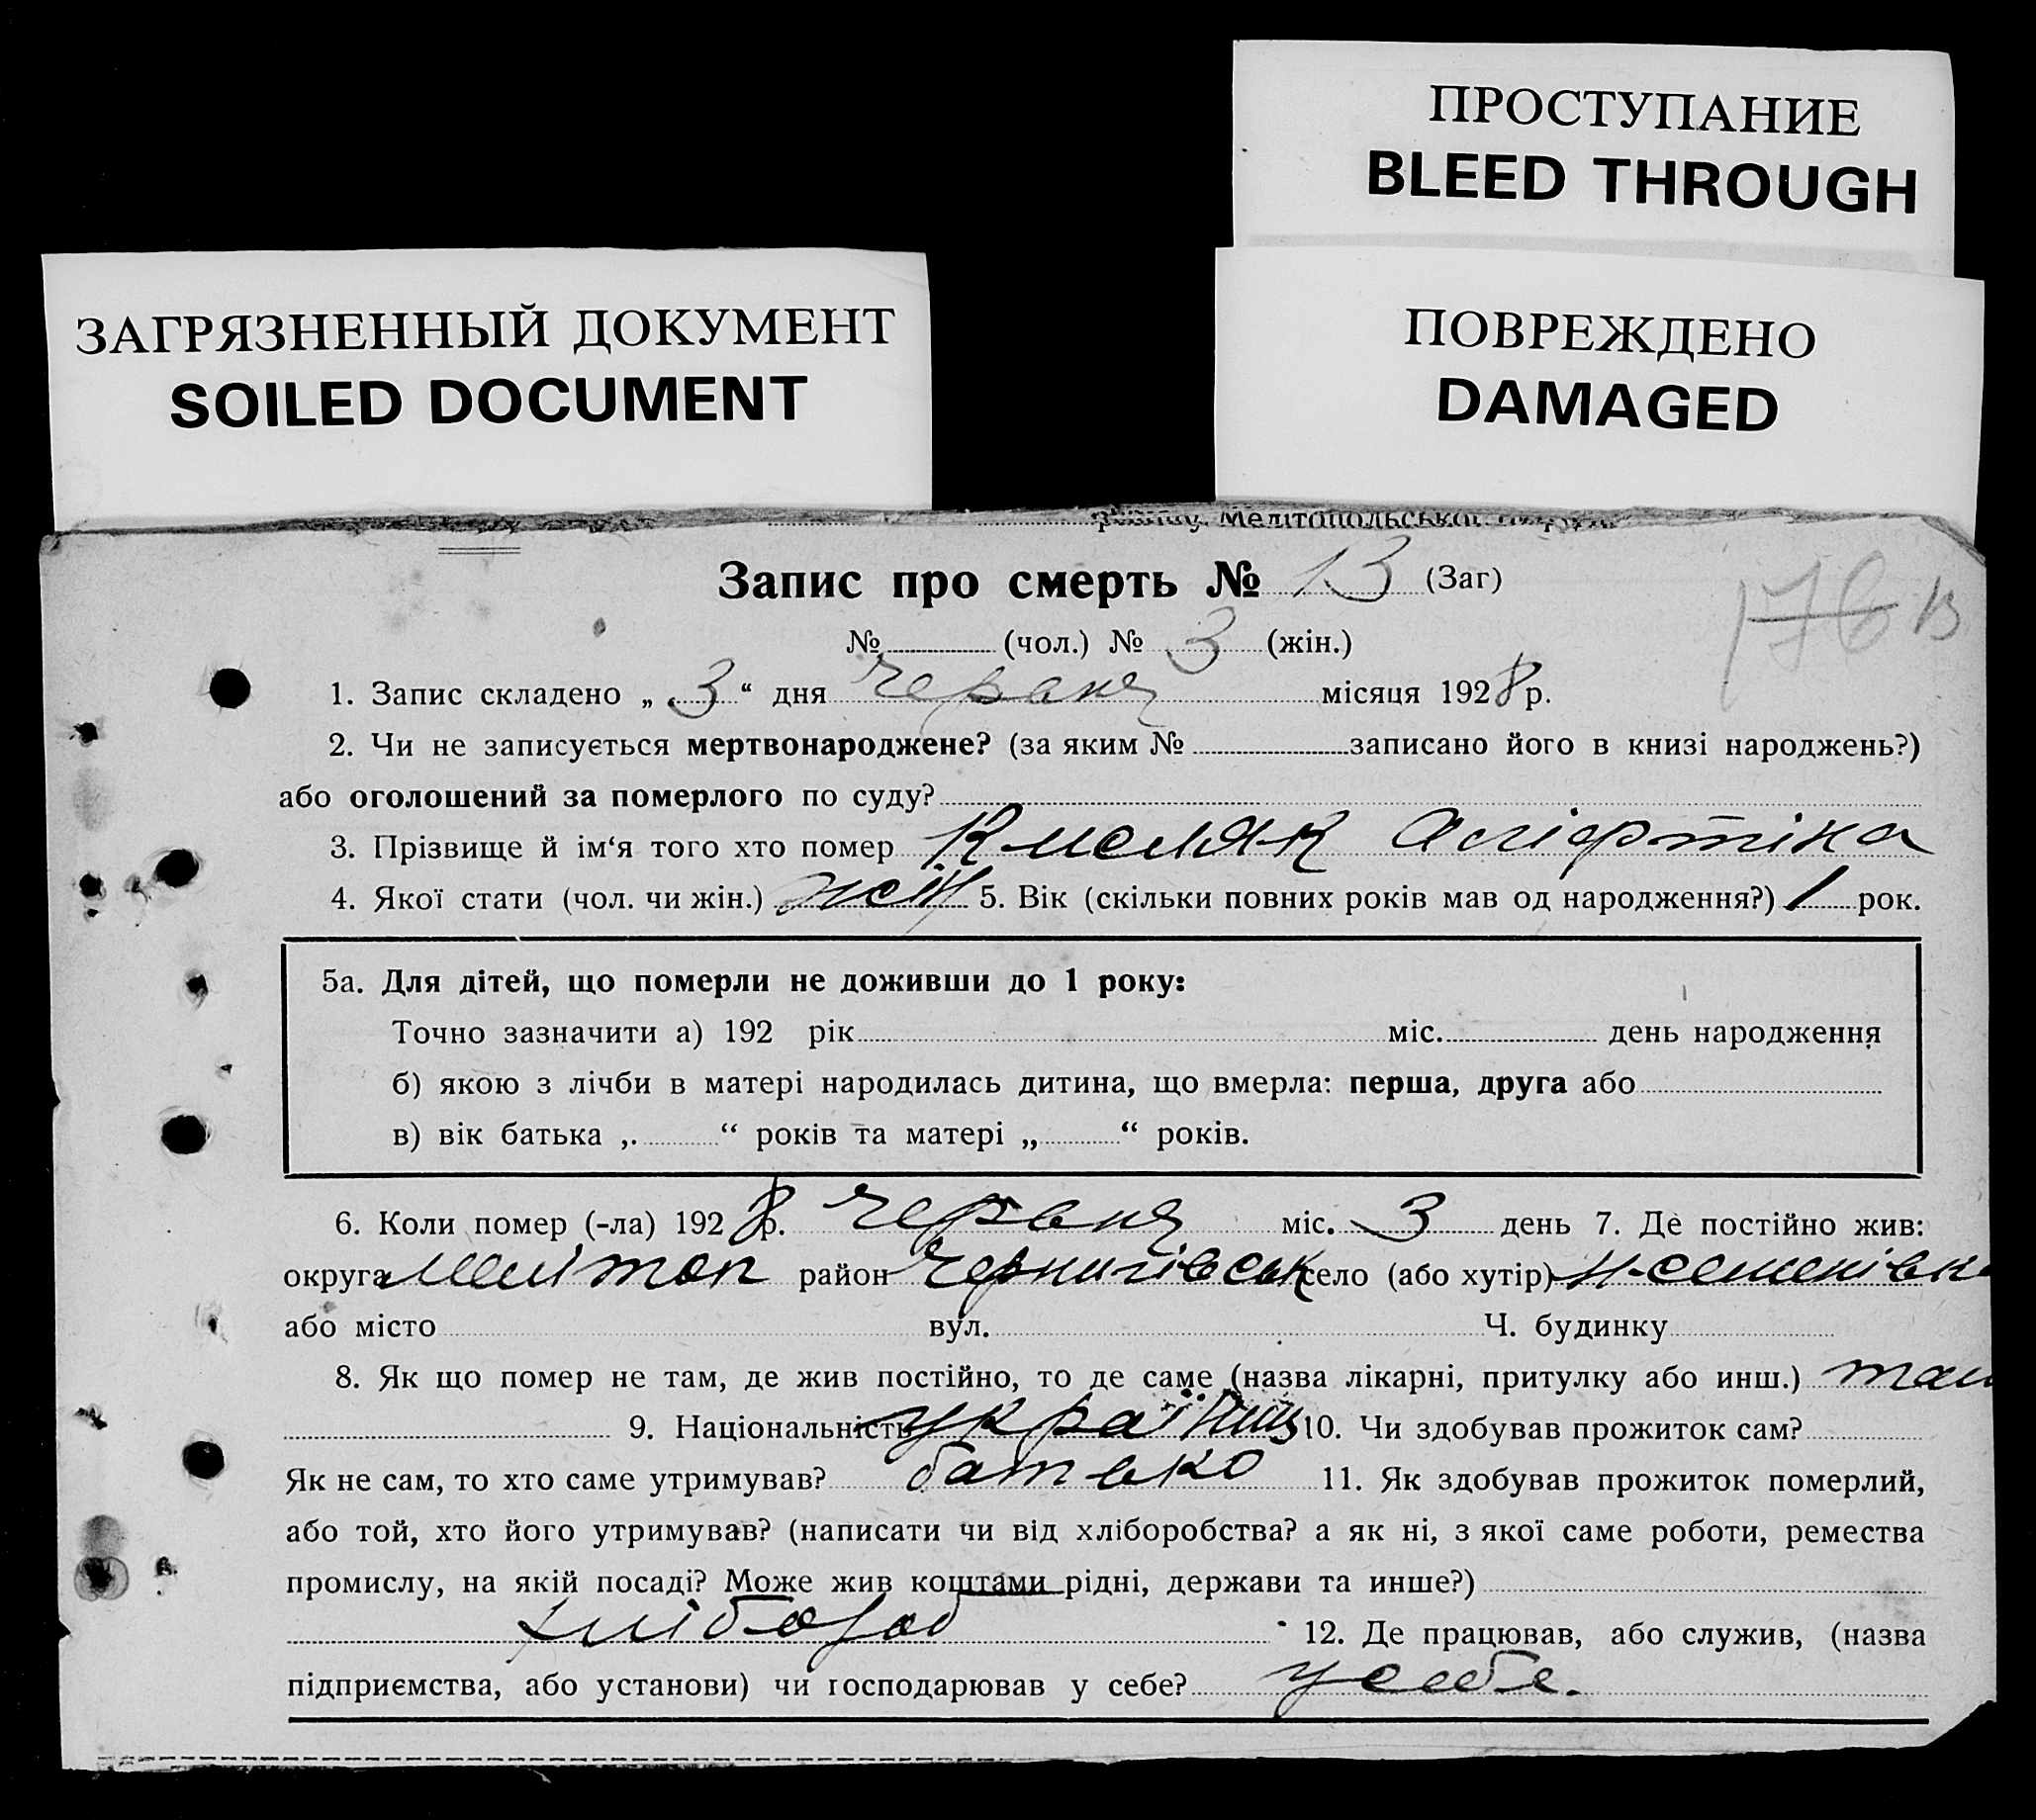 ПРОСТУПАНИЕ
BLEED THROUGH
ЗАГРЯЗНЕННЫЙ ДОКУМЕНТ
SOILED DOCUMENT
ПОВРЕЖДЕНО
DAMAGED
Мелітопольської
Запис про смерть № 13 (Заг)
176 13
№ (чол.) № 3 (жін.)
1. Запис складено „ 3 “ дня червня місяця 1928 р.
2. Чи не записується мертвонароджене? (за яким № записано його в книзі народжень?)
або оголошений за померлого по суду?
3. Прізвище й ім‘я того хто помер
4. Якої стати (чол. чи жін.) жін 5. Вік (скільки повних років мав од народження?) 1 рок.
5а. Для дітей, що померли не доживши до 1 року:
Точно зазначити а) 192 рік міс. день народження
б) якою з лічби в матері народилась дитина, що вмерла: перша, друга або
в) вік батька ,. “ років та матері „ “ років.
6. Коли помер (-ла) 1928 р. червня міс. 3 день 7. Де постійно жив:
округа Меліт район Чернигівськ село (або хутір)
або місто вул. Ч. будинку
8. Як що помер не там, де жив постійно, то де саме (назва лікарні, притулку або инш.) там
9. Національність 10. Чи здобував прожиток сам?
Як не сам, то хто саме утримував? батько 11. Як здобував прожиток померлий,
або той, хто його утримував? (написати чи від хліборобства? а як ні, з якої саме роботи, ремества
промислу, на якій посаді? Може жив коштами рідні, держави та инше?)
хлібороб 12. Де працював, або служив, (назва
підприємства, або установи) чи господарював у себе? у себе.